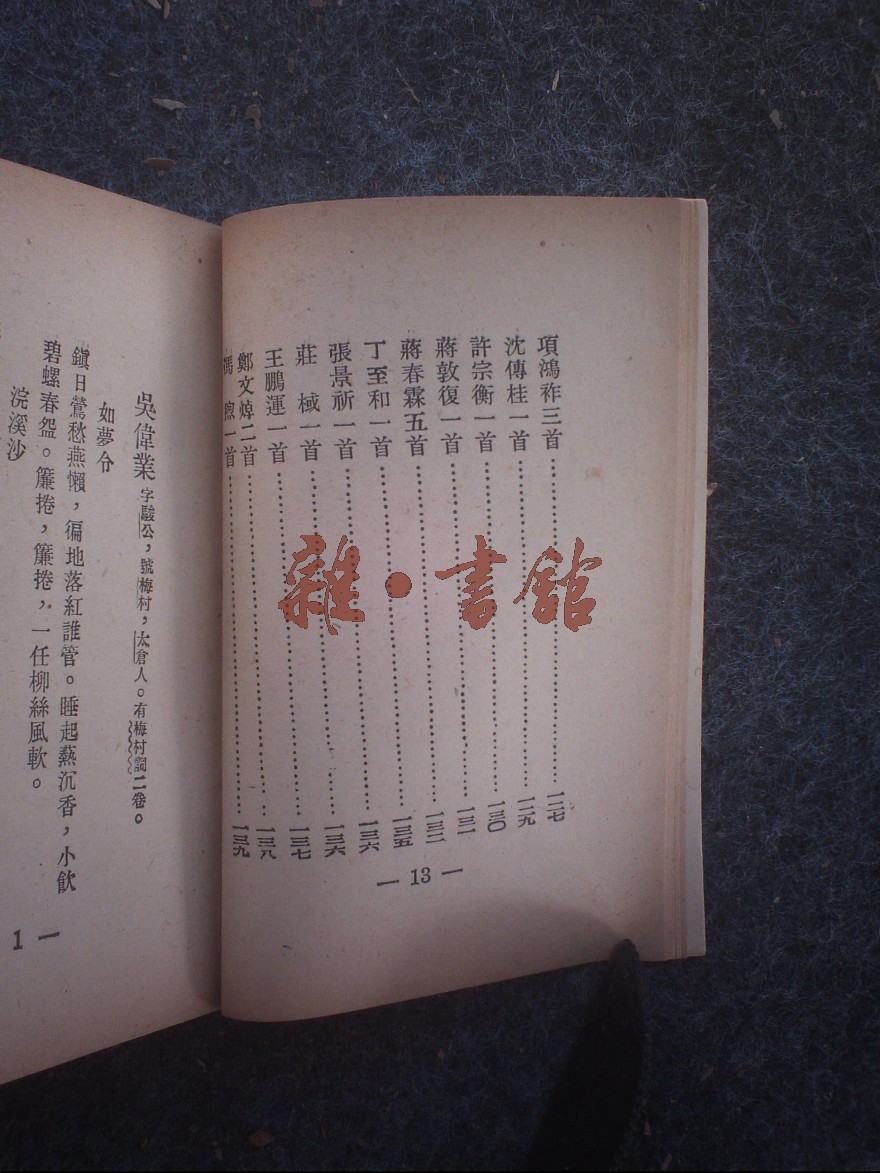 項鴻祚三首……………………一二七
沈傳桂一首……………………一二九
許宗衡一首……………………一三〇
蔣敦復一首……………………一三一
蔣春霖五首……………………一三二
丁至和一首……………………一三五
張景祈一首……………………一三六
莊　棫一首……………………一三六
王鵬運一首……………………一三七
鄭文焯二首……………………一三八
馮　煦一首……………………一三九
— 13 —
吳偉業 字駿公，號梅村，太倉人。有梅村詞二卷。
如夢令
鎭日鶯愁燕懶，徧地落紅誰管。睡起爇沉香，小飲
碧螺春盌。簾捲，簾捲，一任柳絲風軟。
浣溪沙
1 —
雜·書館